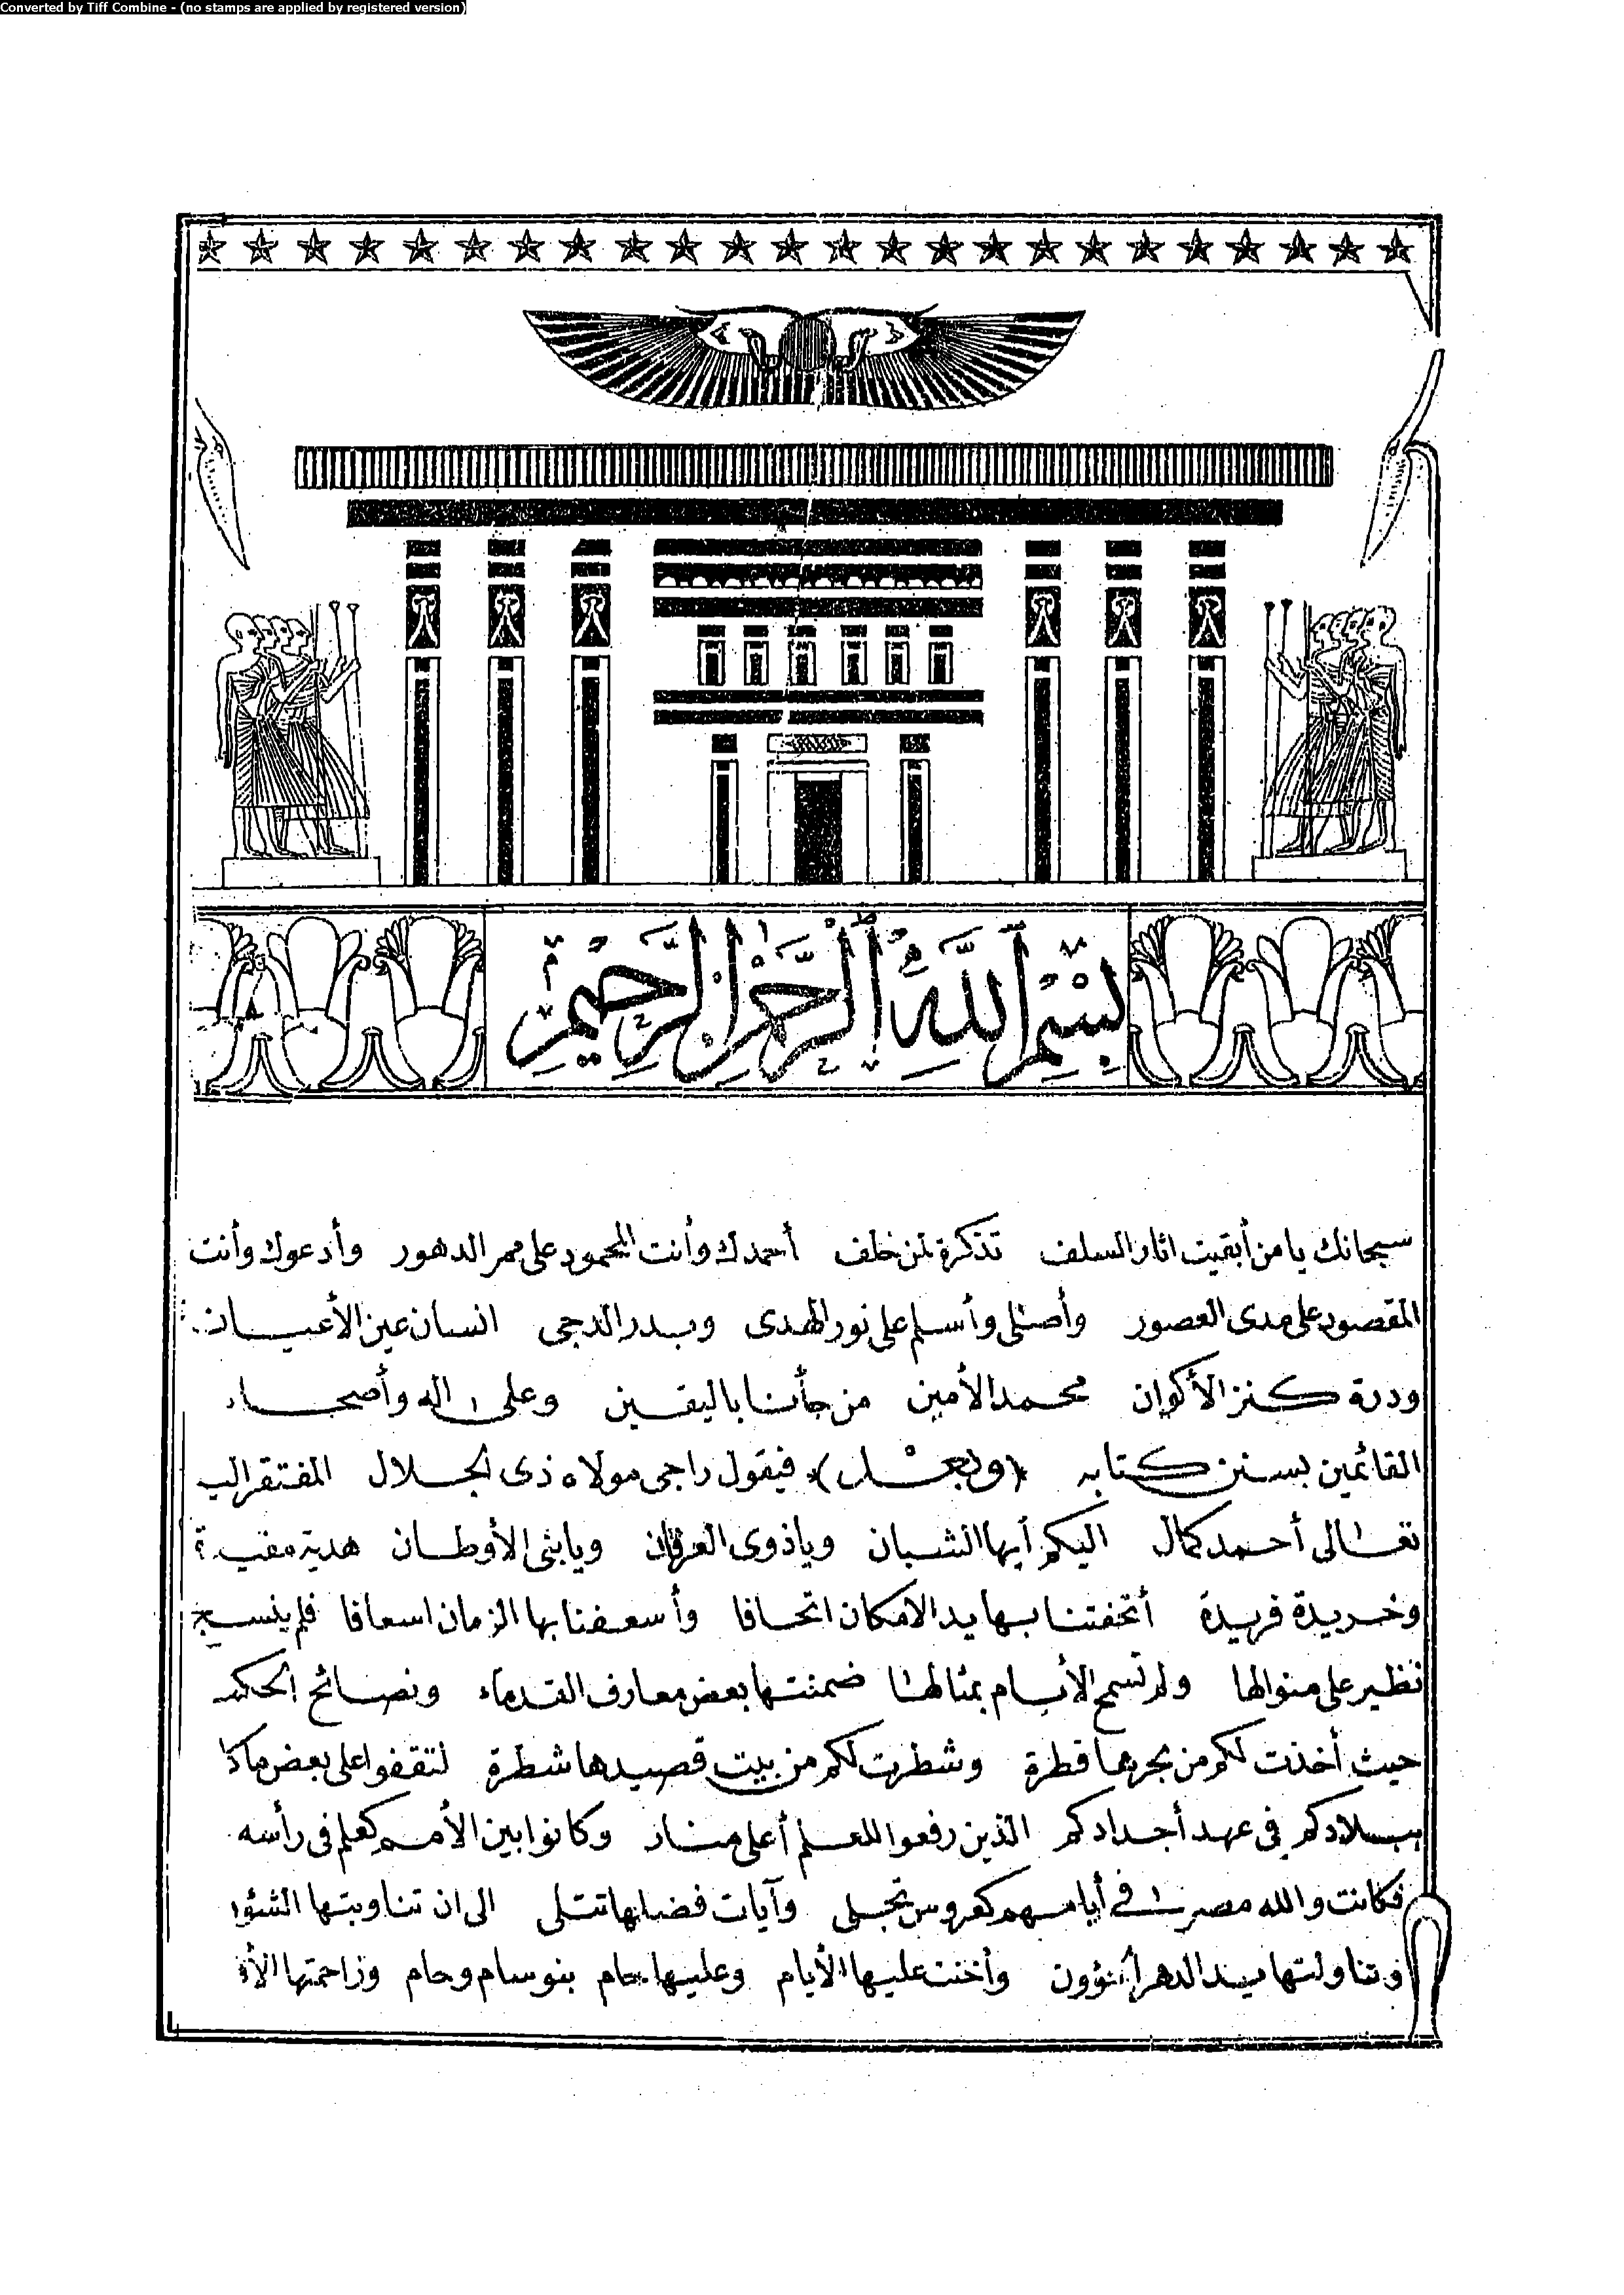 Converted by Tiff Combine - (no stamps are applied by registered version)
بِسْمِ اللَّهِ الرَّحْمٰنِ الرَّحِيْمِ
سبحانك يا من أبقيت اثار السلف تذكرة لمن خلف أحمدك وأنت المحمود على ممر الدهور وأدعوك وأنت
المقصود على مدى العصور وأصلى وأسلم على نور الهدى وبدر الدجى انسان عين الأعيان
ودرة كنز الأكوان محمد الأمين من جأنا باليقين وعلى اله وأصحابه
القائمين بسنن كتابه (وبعد) فيقول راجى مولاه ذى الجلال المفتقر اليه
تعالى أحمد كمال اليكم أيها الشبان وياذوى العرفان ويابنى الأوطان هدية مفيدة
وخريدة فريدة أتحفتنا بها يد الامكان اتحافا وأسعفنا بها الزمان اسعافا فلم ينسج
نظير على منوالها ولم تسمح الأيام بمثالها ضمنتها بعض معارف القدماء ونصائح الحكماء
حيث أخذت لكم من بحرها قطرة وشطرت لكم من بيت قصيدها شطرة لتقفوا على بعض ماكان
ببلادكم فى عهد أجدادكم الذين رفعوا للعلم أعلى منار وكانوا بين الأمم كعلم فى رأسه
فكانت والله مصر فى أيامهم كعروس تجلى وآيات فضلها تتلى الى ان تناوبتها الشؤن
وتناولتها يد الدهر وأخنت عليها الأيام وعليها حام بنوسام وحام وزاحمتها